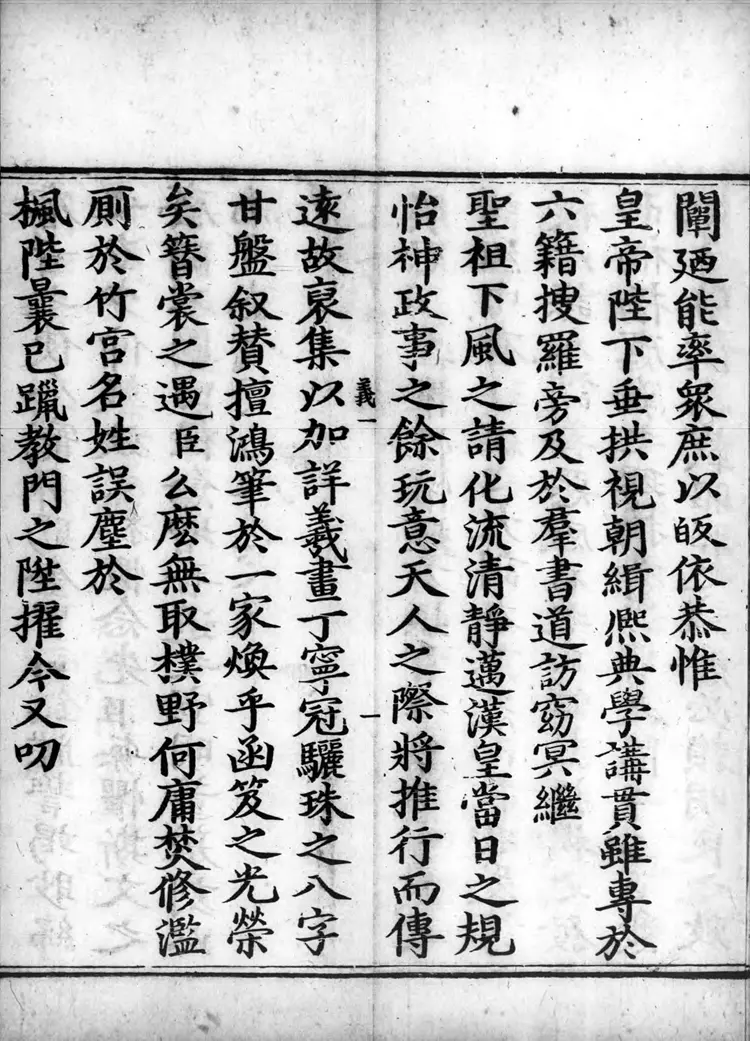 闡廼能率衆庶以皈依恭惟
皇帝陛下垂拱視朝緝熈典學講貫雖專於
六籍搜羅旁及於羣書道訪窈冥繼
聖祖下風之請化流清靜邁漢皇當日之規
怡神政事之餘玩意天人之際將推行而傳
義一
一
遠故裒集以加詳羲畫丁寧冠驪珠之八字
甘盤叙賛擅鴻筆於一家煥乎函笈之光榮
矣簮裳之遇臣么麽無取樸野何庸焚修濫
厠於竹宫名姓誤塵於
楓陛曩已躐教門之陞擢今又叨